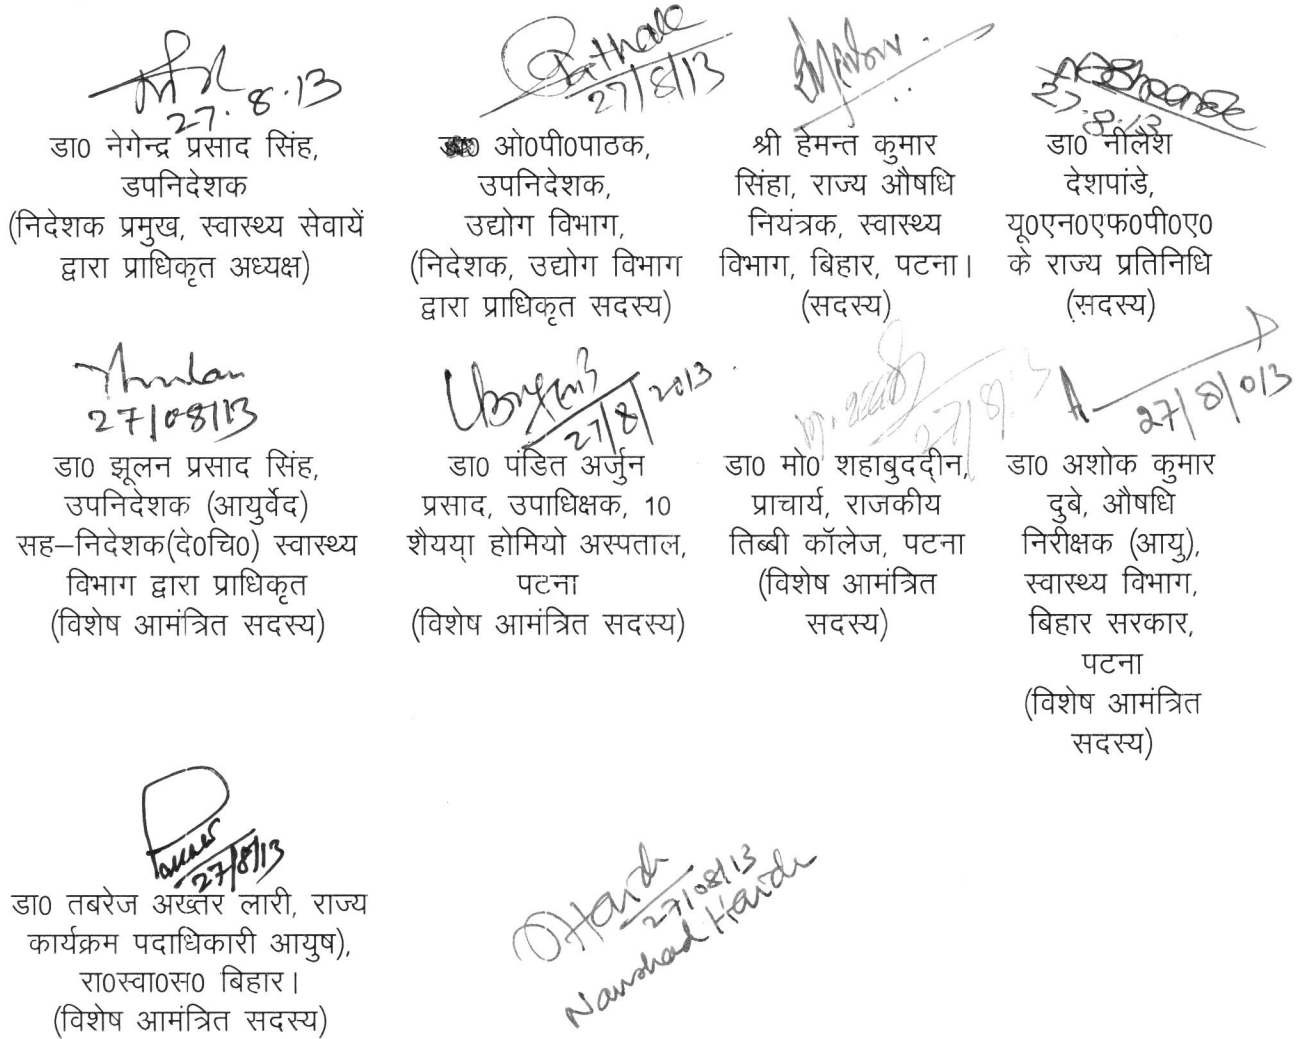 27.8.13
डा0 नेगेन्द्र प्रसाद सिंह,
डपनिदेशक
(निदेशक प्रमुख, स्वास्थ्य सेवायें
द्वारा प्राधिकृत अध्यक्ष)
27/8/13
ओ0पी0पाठक,
उपनिदेशक,
उद्योग विभाग,
(निदेशक, उद्योग विभाग
द्वारा प्राधिकृत सदस्य)
श्री हेमन्त कुमार
सिंहा, राज्य औषधि
नियंत्रक, स्वास्थ्य
विभाग, बिहार, पटना।
(सदस्य)
27.8.13
डा0 नीलेश
देशपांडे,
यू0एन0एफ0पी0ए0
के राज्य प्रतिनिधि
(सदस्य)
27/08/13
डा0 झूलन प्रसाद सिंह,
उपनिदेशक (आयुर्वेद)
सह–निदेशक(दे0चि0) स्वास्थ्य
विभाग द्वारा प्राधिकृत
(विशेष आमंत्रित सदस्य)
27/8/2013
डा0 पंडित अर्जुन
प्रसाद, उपाधिक्षक, 10
शैयया होमियो अस्पताल,
पटना
(विशेष आमंत्रित सदस्य)
27/8/13
डा0 मो0 शहाबुददीन,
प्राचार्य, राजकीय
तिब्बी कॉलेज, पटना
(विशेष आमंत्रित
सदस्य)
27/8/013
डा0 अशोक कुमार
दुबे, औषधि
निरीक्षक (आयु),
स्वास्थ्य विभाग,
बिहार सरकार,
पटना
(विशेष आमंत्रित
सदस्य)
27/8/13
डा0 तबरेज अख्तर लारी, राज्य
कार्यक्रम पदाधिकारी आयुष),
रा0स्वा0स0 बिहार।
(विशेष आमंत्रित सदस्य)
27/08/13
Naushad Haider